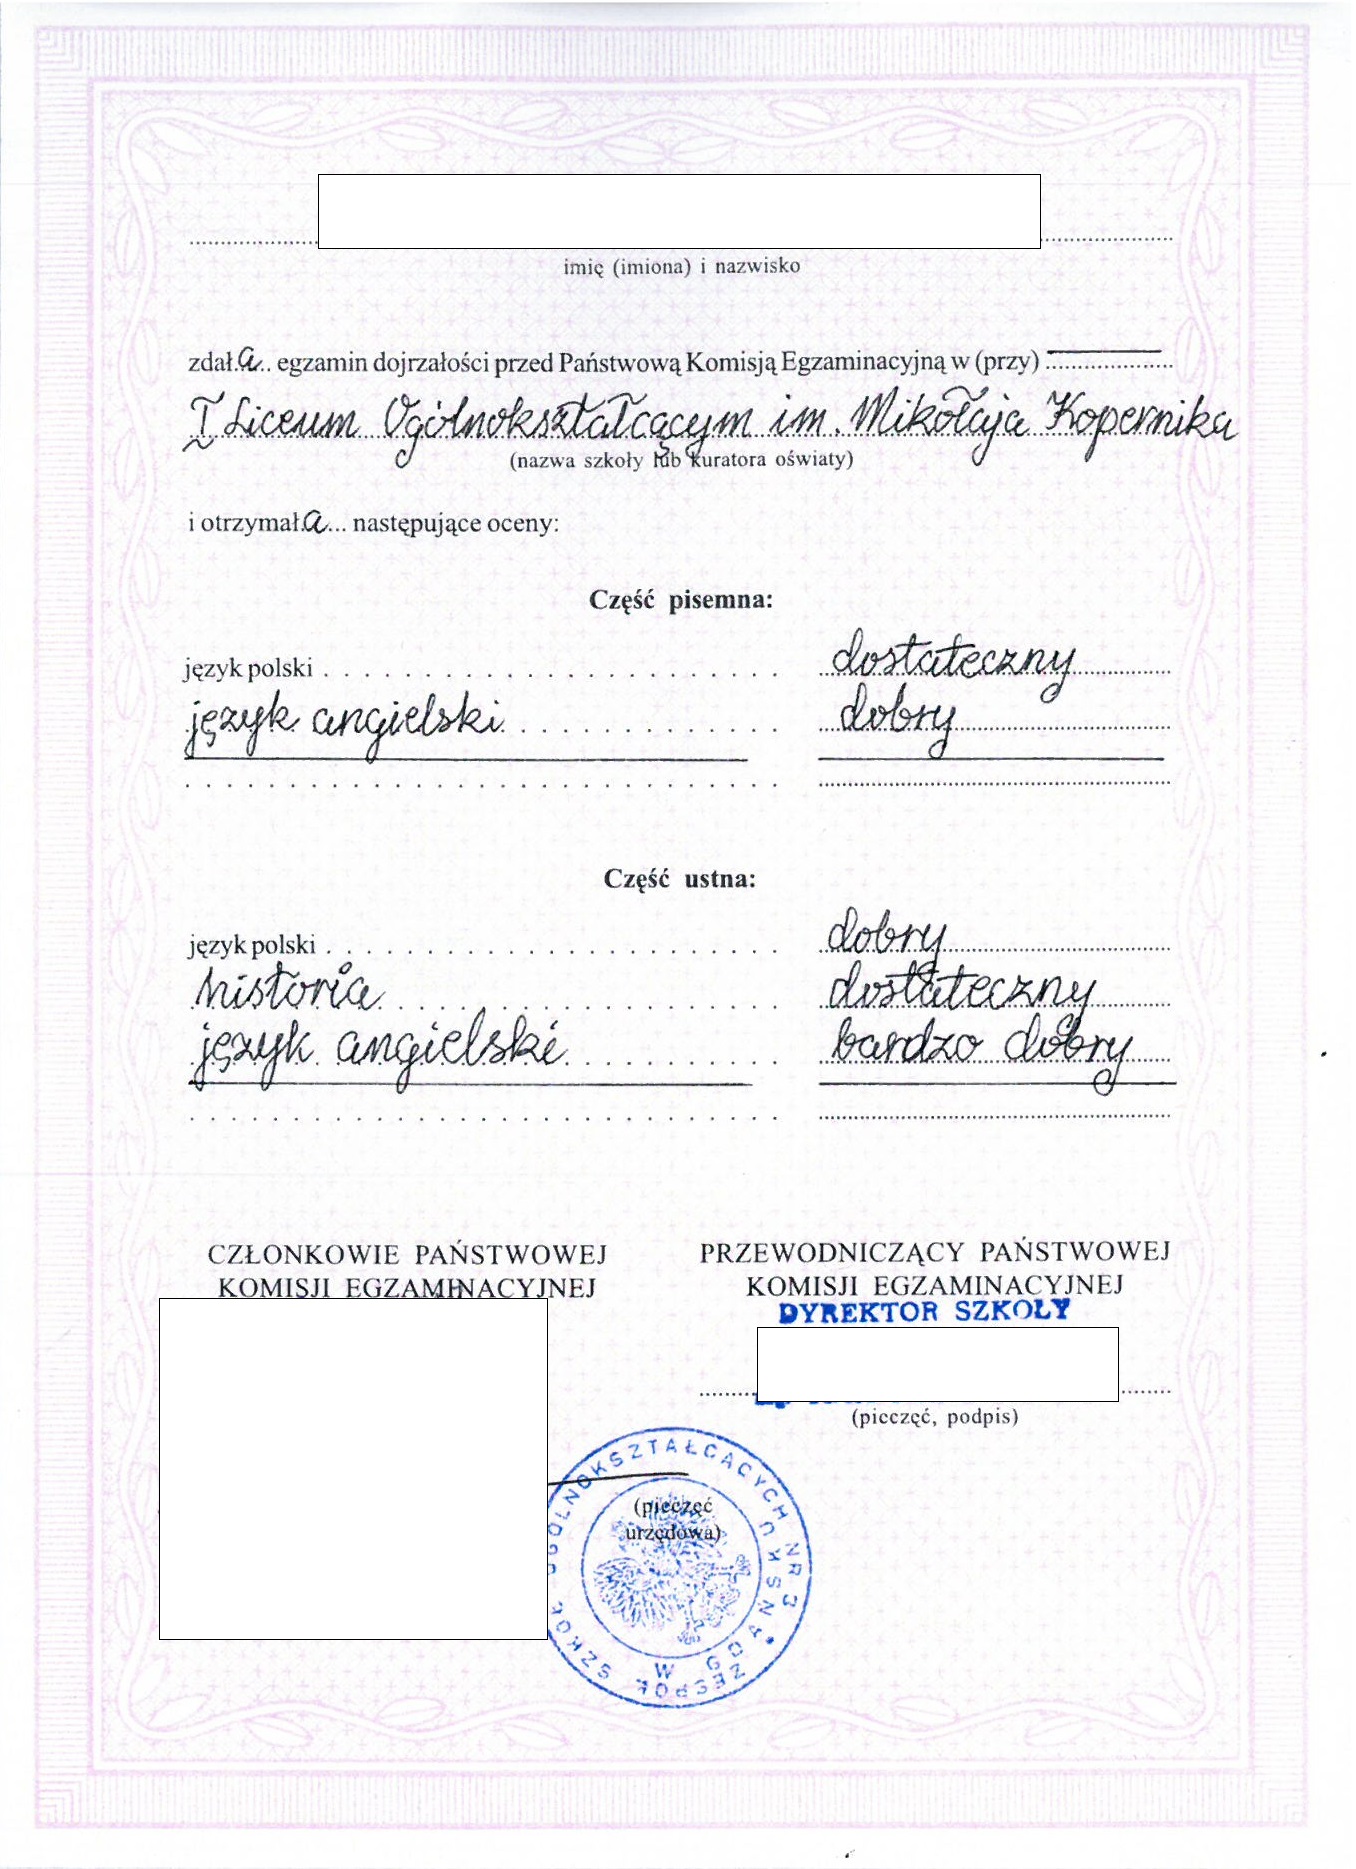 imię (imiona) i nazwisko
zdał.a.. egzamin dojrzałości przed Państwową Komisją Egzaminacyjną w (przy)
I Liceum Ogólnokształcącym im. Mikołaja Kopernika
(nazwa szkoły lub kuratora oświaty)
i otrzymał.a... następujące oceny:
Część pisemna:
język polski dostateczny
język angielski dobry
Część ustna:
język polski dobry
historia dostateczny
język angielski bardzo dobry
CZŁONKOWIE PAŃSTWOWEJ
KOMISJI EGZAMINACYJNEJ
PRZEWODNICZĄCY PAŃSTWOWEJ
KOMISJI EGZAMINACYJNEJ
DYREKTOR SZKOŁY
(pieczęć, podpis)
(pieczęć
urzędowa)
ZESPÓŁ SZKÓŁ OGÓLNOKSZTAŁCĄCYCH NR 3
W GDAŃSKU